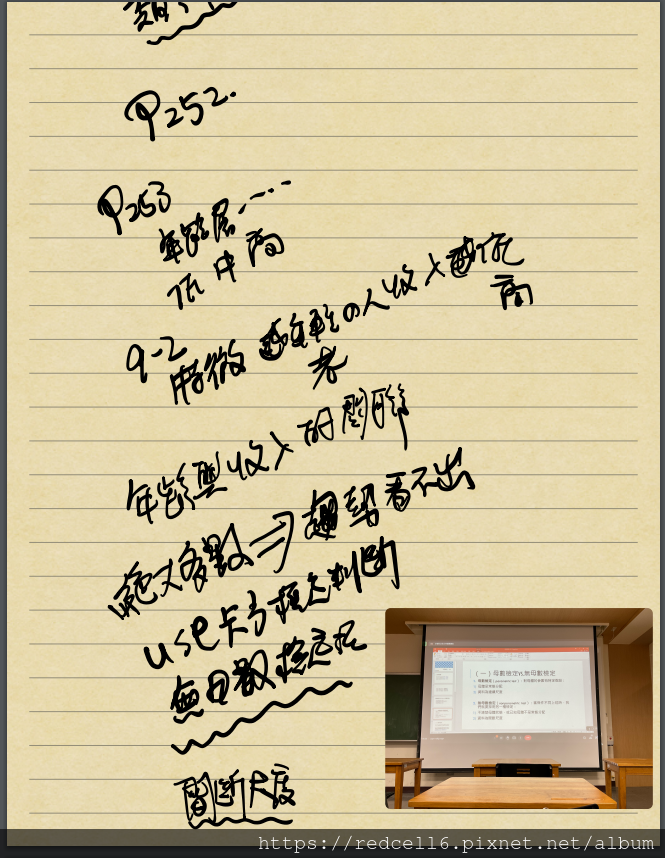 P252.
P253
年齡層‧‧‧‧
低中高
9-2
特徵 越年輕の人收入越低
老 高
年齡與收入的關聯
絕大多數⇒趨勢看不出
use卡方檢定判斷
無母數檢定
間斷尺度
(一)母數檢定vs.無母數檢定
https://redcell6.pixnet.net/album